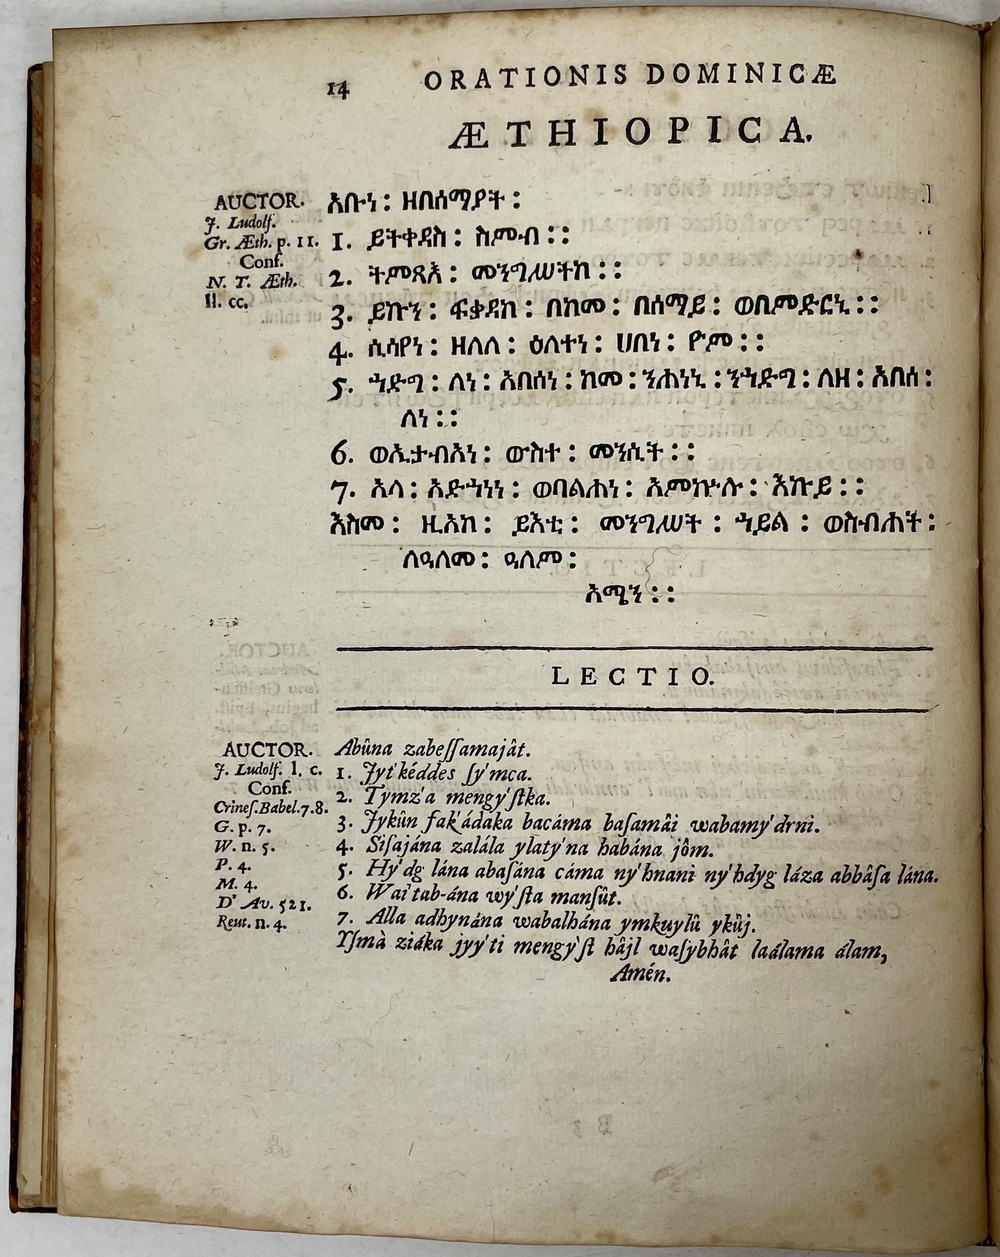 14 ORATIONIS DOMINICÆ
ÆTHIOPICA.
AUCTOR.
J. Ludolf.
Gr. Æth. p. 11.
Conf.
N. T. Æth.
ll. cc.
አቡነ : ዘበሰማያት :
1. ይትቀዳስ : ስምብ : :
2. ትምጻእ : መንግሥትከ : :
3. ይኩን : ፋቃዳከ : በከመ : በሰማይ : ወበምድርኒ : :
4. ሲሳየነ : ዘለለ : ዕለተነ : ሀበነ : ዮም : :
5. ኅድግ : ለነ : አበሰነ : ከመ : ንሕነነኒ : ንኅድግ : ለዘ : አበሰ :
ለነ : :
6. ወኢታብአነ : ውስተ : መንሲት : :
7. አላ : አድኅነነ : ወባልሐነ : እምኵሉ : እኩይ : :
እስመ : ዚአከ : ይእቲ : መንግሥት : ኅይል : ወስብሐት :
ለዓለመ : ዓለም :
አሜን : :
LECTIO.
AUCTOR.
J. Ludolf. l. c.
Conf.
Crines. Babel. 7. 8.
G. p. 7.
W. n. 5.
P. 4.
M. 4.
D' Av. 521.
Reut. n. 4.
Abûna zabeſſamajât.
1. Jyt'kéddes ſy'mca.
2. Tymz'a mengy'ſtka.
3. Jykûn fak'ádaka bacáma baſamâi wabamy'drni.
4. Siſajána zalála ylaty'na habána jôm.
5. Hy'dg lána abaſána cáma ny'hnani ny'hdyg láza abbâſa lána.
6. Wai'tab-ána wy'ſta manſût.
7. Alla adhynána wabalhána ymkuylû ykûj.
Yſmà ziáka jyy'ti mengy'ſt hâjl waſybhât laálama álam,
Amén.